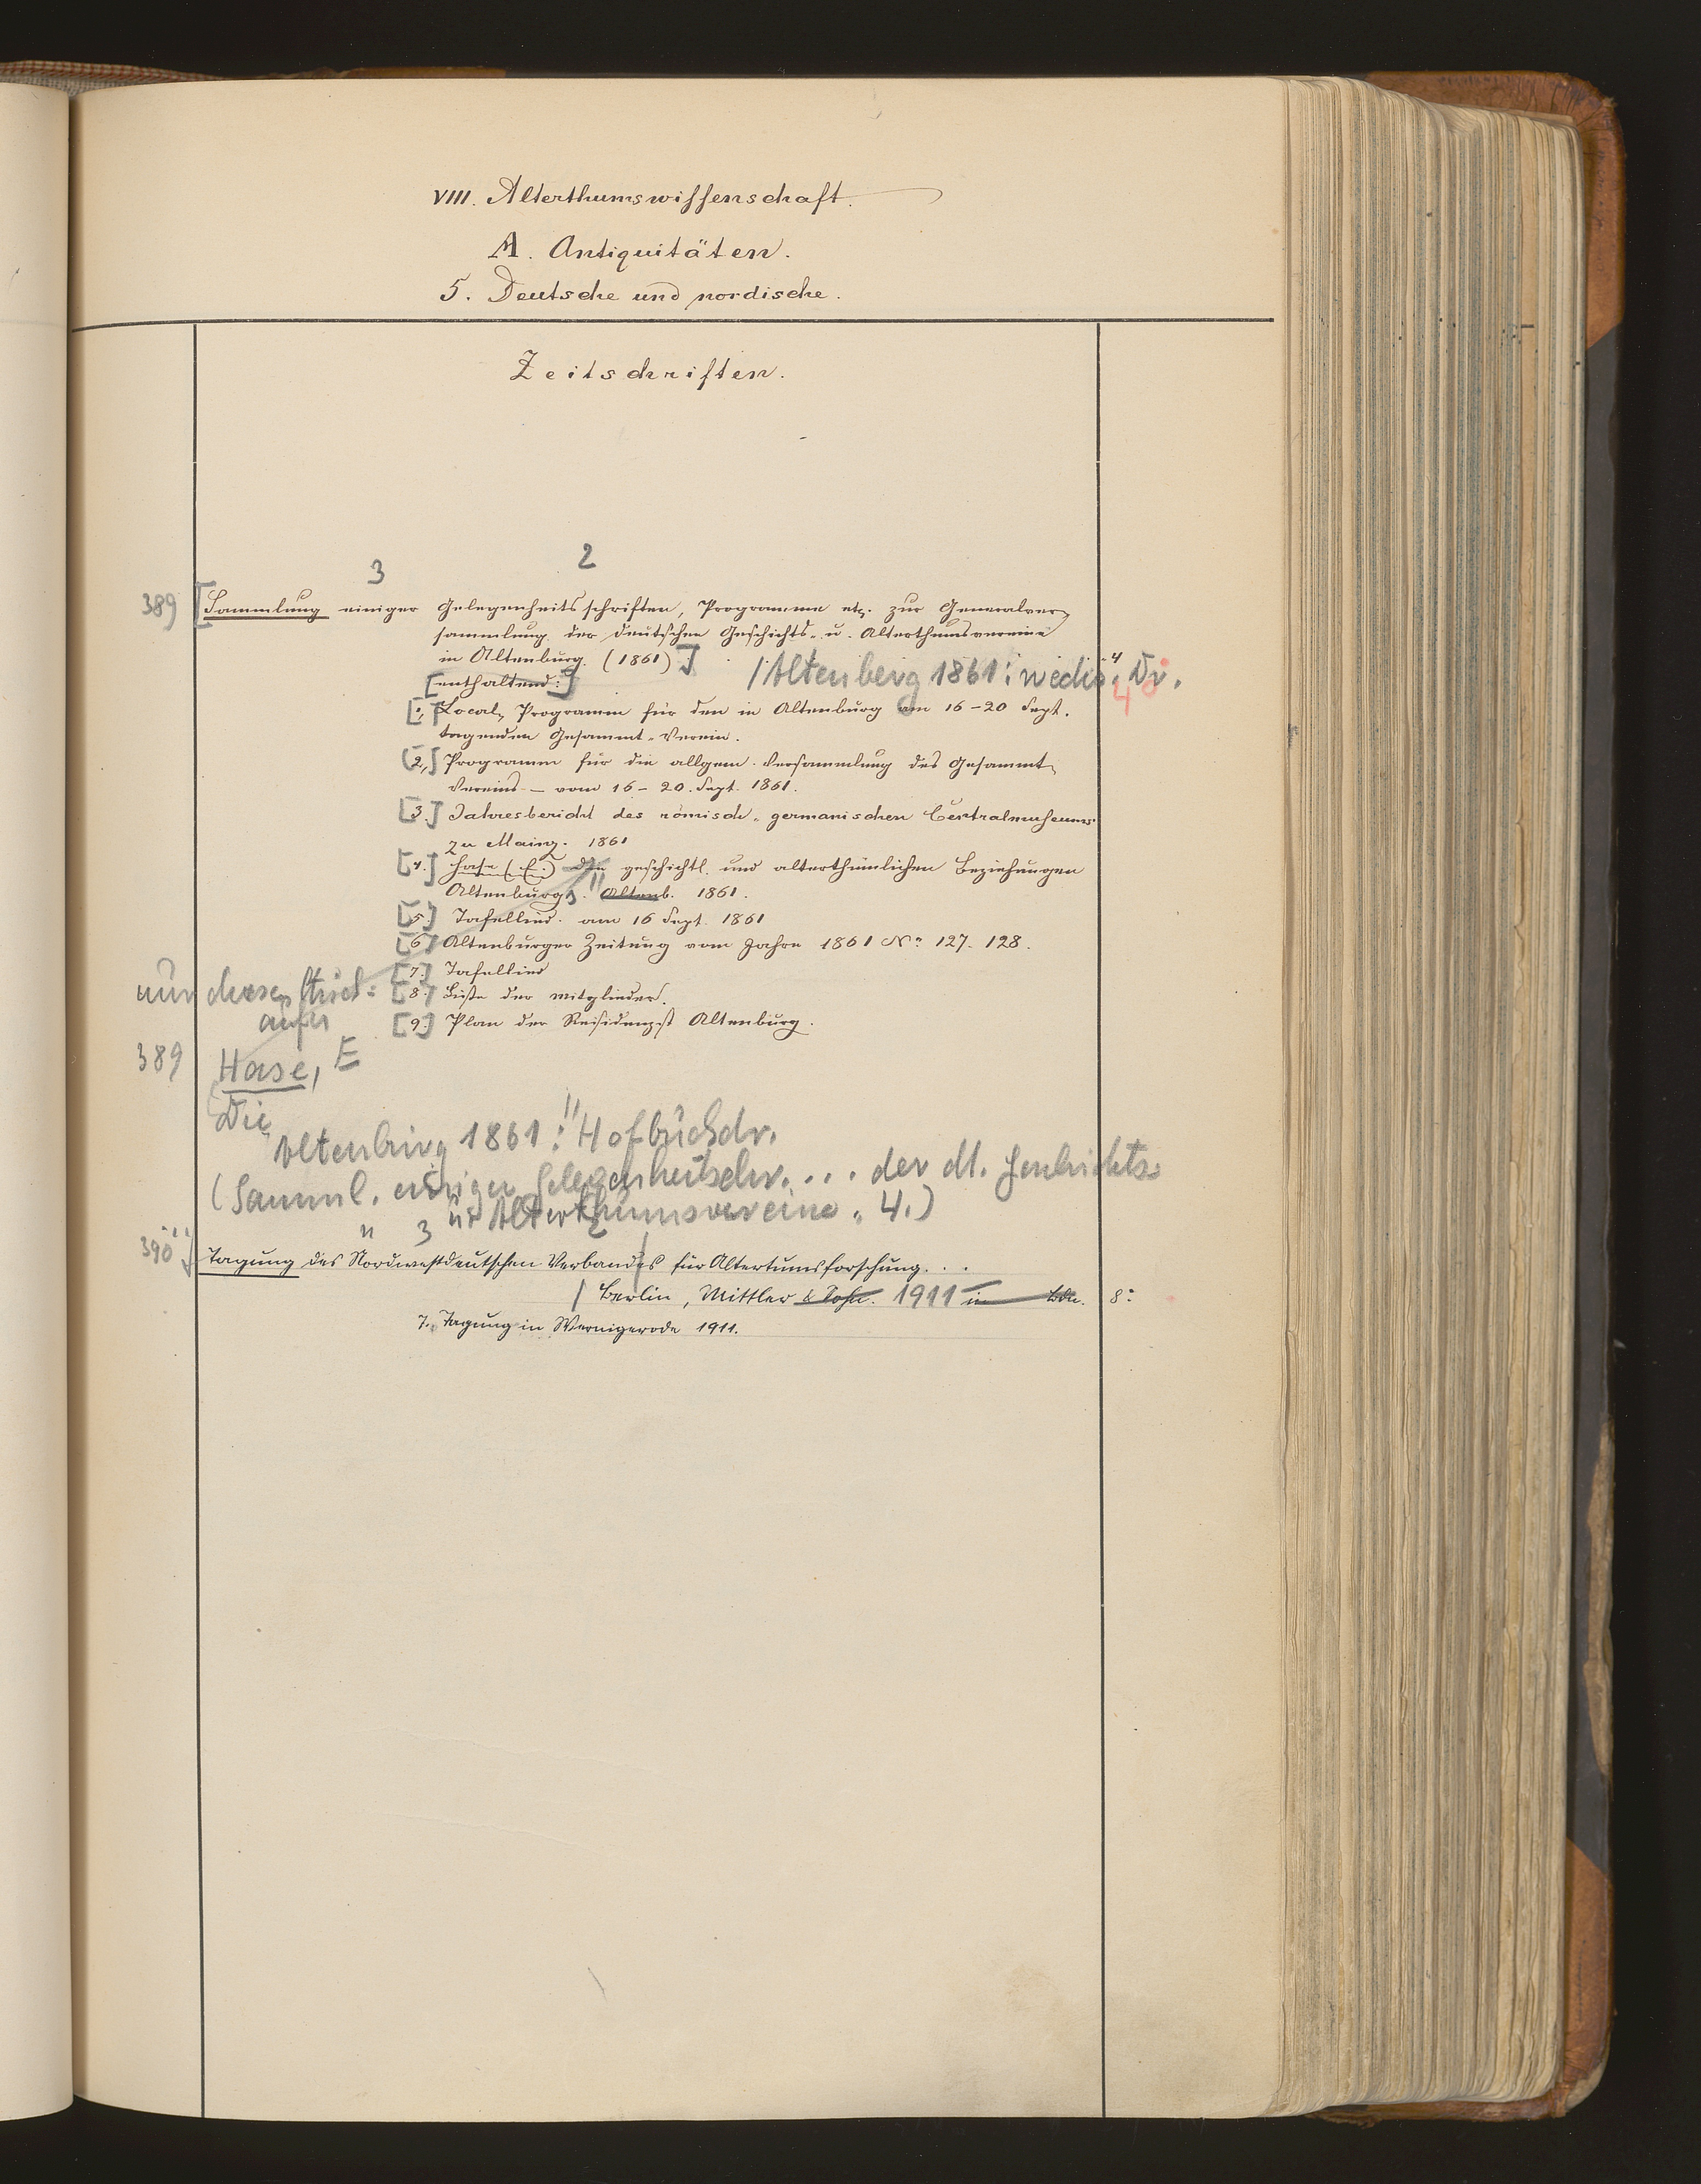 VIII. Alterthumswissenschaft.
A. Antiquitäten.
5. Deutsche und nordische.
Zeitschriften.
3 2
389 [Sammlung einiger Gelegenheitsschriften, Programme etc. zur Generalver-
sammlung der deutschen Geschichts- u. Alterthumsvereine
in Altenburg. (1861)]
4
/Altenburg 1861: Dr.
4
[enthaltend:]
[1.,] Local-Programm für den in Altenburg am 16-20 Sept.
tagenden Gesammt-Verein.
[2.,] Programm für die allgem. Versammlung des Gesammt-
Vereins - vom 16-20. Sept. 1861.
[3.] Jahresbericht des römisch-germanischen Centralmuseums
zu Mainz. 1861
[4.] Hase (E.) Die geschichtl. und alterthümlichen Beziehungen
Altenburgs. Altenb. 1861.
[5.] Tafellied. am 16 Sept. 1861
[6.] Altenburger Zeitung vom Jahre 1861 No. 127. 128.
[7.] Tafellied
[8.] Liste der Mitglieder.
[9.] Plan der Residenzst Altenburg.
nur
389 Hase, E
Die
Altenburg 1861: Hofbuchdr.
(Samml. einiger Gelegenheitsschr. ... der dt. Geschichts-
u. Alterthumsvereine. 4.)
3 2
390 Tagung des Nordwestdeutschen Verbandes für Altertumsforschung...
/ Berlin, Mittler & Sohn. 1911 in Bdn. 8°
7. Tagung in Wernigerode 1911.